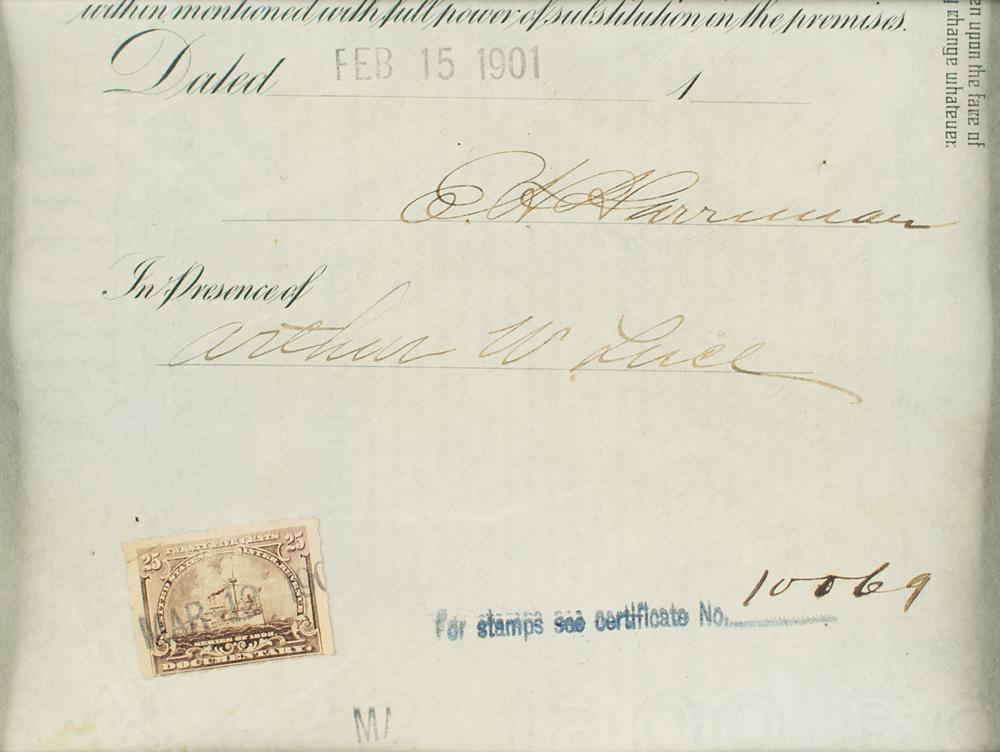 within mentioned with full power of substitution in the premises.
Dated FEB 15 1901 1
E. H Harriman
In Presence of
Arthur W. Luce
25 TWENTY FIVE CENTS 25
UNITED STATES INTER. REVENUE
MAR 12
SERIES OF 1898.
DOCUMENTARY.
For stamps see certificate No. 10069
MA
upon the face of
change whatever.